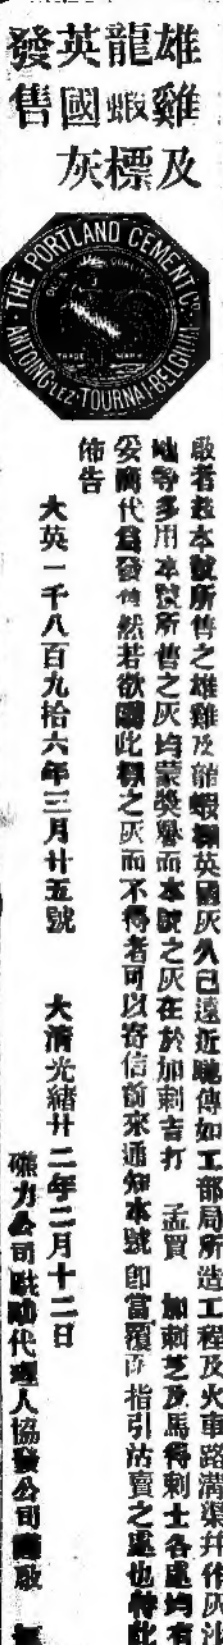 雄雞及
龍蝦標
英國灰
發售
THE PORTLAND CEMENT Co
ANTOING-LEZ-TOURNAI-BELGIUM
TRADE MARK
敬者本號所售之雄雞及龍蝦標英國灰久已遠近馳傳如工部局所造工程及火車路溝渠并作灰沙
等多用本號所售之灰均蒙獎譽而本號之灰在於加剌吉打 孟買 加剌芝及馬得剌士各處均有
妥商代為發售然若欲購此標之灰而不得者可以寄信前來通知本號即當覆函指引沽賣之處也特此
佈告
大英一千八百九拾六年三月廿五號 大清光緒廿二年二月十二日
力公司 代理人協發公司 啟